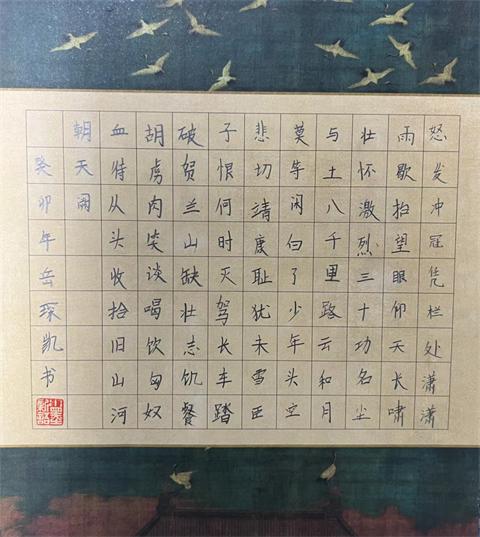 怒发冲冠凭栏处潇潇
雨歇抬望眼仰天长啸
壮怀激烈三十功名尘
与土八千里路云和月
莫等闲白了少年头空
悲切靖康耻犹未雪臣
子恨何时灭驾长车踏
破贺兰山缺壮志饥餐
胡虏肉笑谈喝饮匈奴
血待从头收拾旧山河
朝天阙
癸卯年岳琛凯书